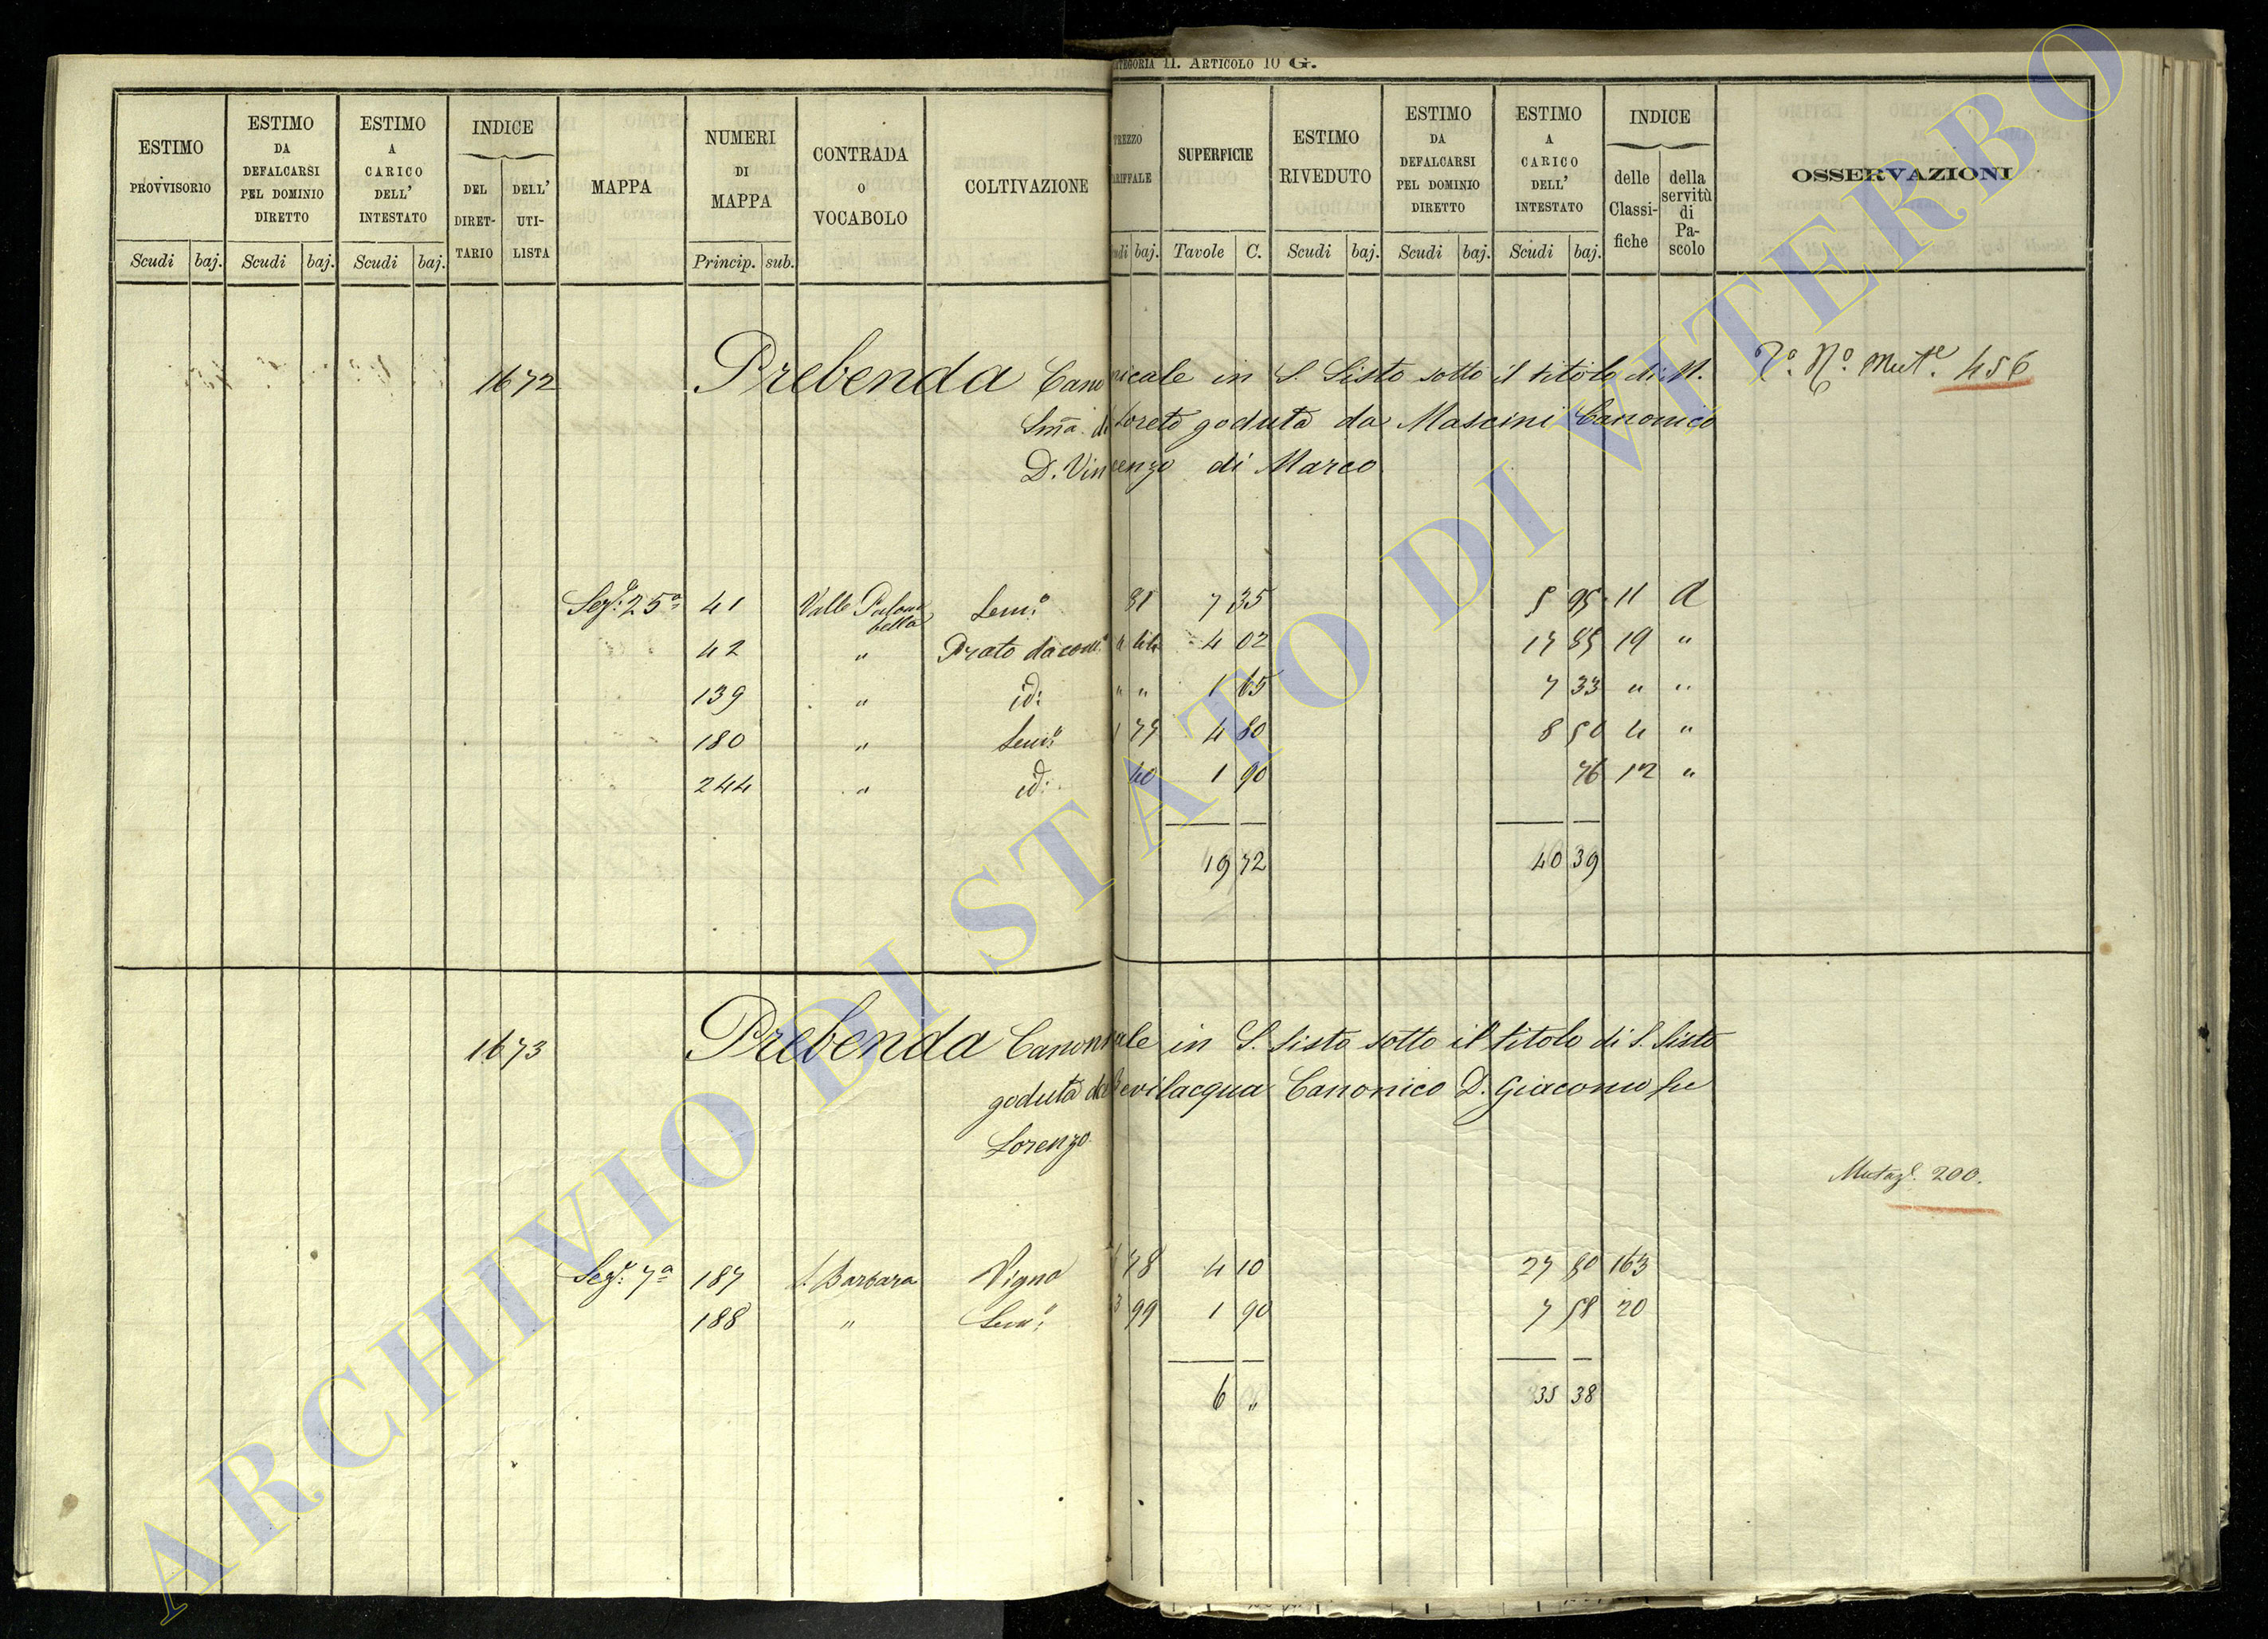 CATEGORIA II. ARTICOLO 10 G.
ESTIMO PROVVISORIO | ESTIMO DA DEFALCARSI PEL DOMINIO DIRETTO | ESTIMO A CARICO DELL' INTESTATO | INDICE DEL DIRETTARIO | DELL' UTILISTA | MAPPA | NUMERI DI MAPPA | CONTRADA O VOCABOLO | COLTIVAZIONE | PREZZO TARIFFALE | SUPERFICIE | ESTIMO RIVEDUTO | ESTIMO DA DEFALCARSI PEL DOMINIO DIRETTO | ESTIMO A CARICO DELL' INTESTATO | INDICE delle Classifiche | della servitù di Pascolo | OSSERVAZIONI
Scudi | baj. | Scudi | baj. | Scudi | baj. | Princip. | sub. | Scudi | baj. | Tavole | C. | Scudi | baj. | Scudi | baj. | Scudi | baj.
1672 Prebenda Canonicale in S. Sisto sotto il titolo di M. | Nº Mut.e 456
Sm̃a di Loreto goduta da Mascini Canonico
D. Vincenzo di Marco
Sez.e 25a | 41 | Valle Palombella | Sem.o | 81 | 7 35 | 5 95 | 11 | a
42 | " | Prato da | 4 44 | 4 02 | 17 85 | 19 | "
139 | " | id: | " " | 1 65 | 7 33 | " | "
180 | " | Sem.o | 1 77 | 4 80 | 8 50 | "
244 | " | id: | 40 | 1 90 | 76 | 12 | "
19 72 | 40 39
1673 Prebenda Canonicale in S. Sisto sotto il titolo di S. Sisto
goduta da Bevilacqua Canonico D. Giacomo fu
Lorenzo
Mutaz.e 200.
Sez.e 7a | 187 | S. Barbara | Vigna | 78 | 4 10 | 27 80 | 163
188 | " | Sem.o | 3 99 | 1 90 | 7 58 | 20
6 " | 35 38
ARCHIVIO DI STATO DI VITERBO